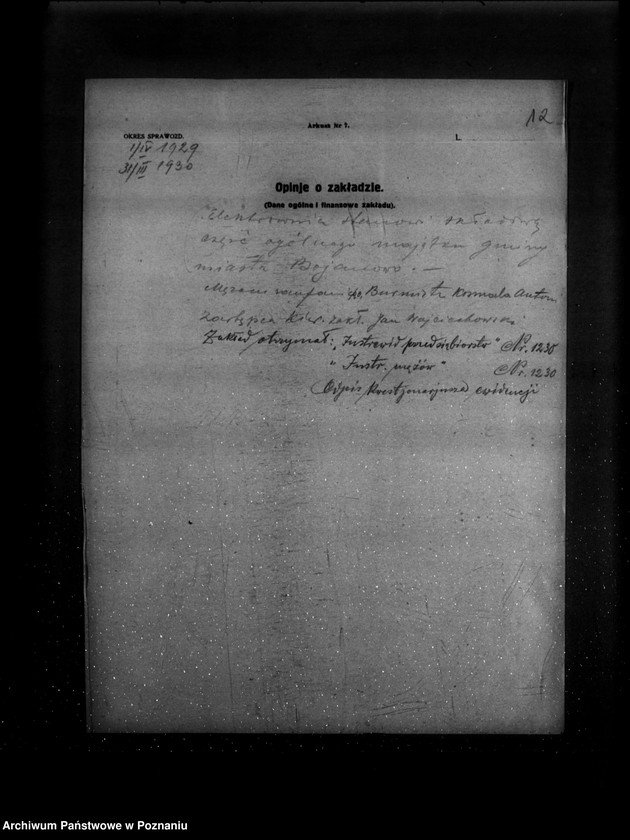 12
Arkusz Nr 7.
OKRES SPRAWOZD.
L.
1/IV 1929
31/III 1930
Opinje o zakładzie.
(Dane ogólne i finansowe zakładu).
Elektrownia stanowi
część ogólnego majątku gminy
miasta Bojanowo. —
Mężem zaufan. Burmistrz Kosmala Anton
zastępca kier. zakł. Jan Wojciechowski
Zakład otrzymał: „Instr. ewid przedsiębiorstw" Nr. 1230
„Instr. mężów" Nr. 1230
Odpis Kwestjonarjusza ewidencji
Archiwum Państwowe w Poznaniu